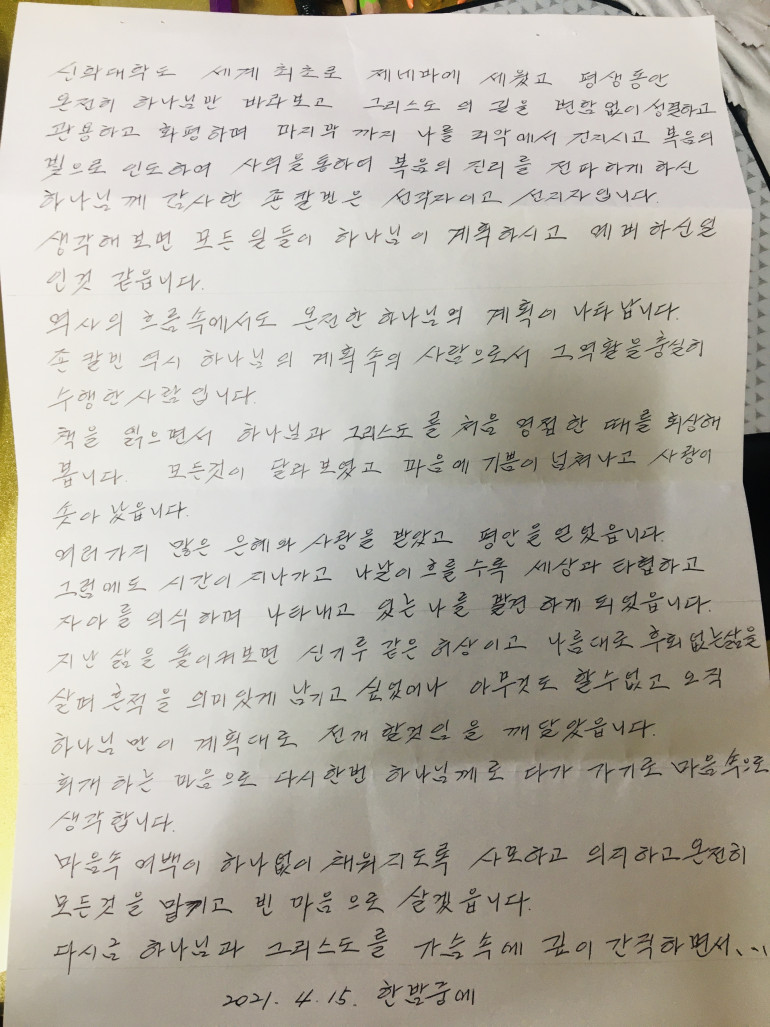 신학대학도 세계 최초로 제네바에 세웠고 평생동안
온전히 하나님만 바라보고 그리스도의 길을 변함없이 성결하고
관용하고 화평하며 마지막 까지 나를 죄악에서 건지시고 복음의
빛으로 인도하여 사역을 통하여 복음의 진리를 전파하게 하신
하나님께 감사한 죤 칼빈은 선각자이고 선지자입니다.
생각해 보면 모든 일들이 하나님이 계획하시고 예비하신일
인것 같읍니다.
역사의 흐름속에서도 온전한 하나님의 계획이 나타납니다.
죤 칼빈 역시 하나님의 계획속의 사람으로서 그 역활을 충실히
수행한 사람입니다.
책을 읽으면서 하나님과 그리스도를 처음 영접한 때를 회상해
봅니다. 모든것이 달라 보였고 마음에 기쁨이 넘쳐나고 사랑이
솟아 났읍니다.
여러가지 많은 은혜와 사랑을 받았고 평안을 얻었읍니다.
그럼에도 시간이 지나가고 나날이 흐를수록 세상과 타협하고
자아를 의식하며 나타내고 있는 나를 발견하게 되었읍니다.
지난 삶을 돌이켜보면 신기루 같은 허상이고 나름대로 후회없는삶을
살며 흔적을 의미있게 남기고 싶었어나 아무것도 할수없고 오직
하나님 만이 계획대로 전개 할것임을 깨달았읍니다.
회개 하는 마음으로 다시한번 하나님께로 다가 가기로 마음속으로
생각합니다.
마음속 여백이 하나없이 채워지도록 사모하고 의지하고 온전히
모든것을 맡기고 빈 마음으로 살겠읍니다.
다시금 하나님과 그리스도를 가슴속에 깊이 간직하면서...
2021. 4. 15. 한밤중에